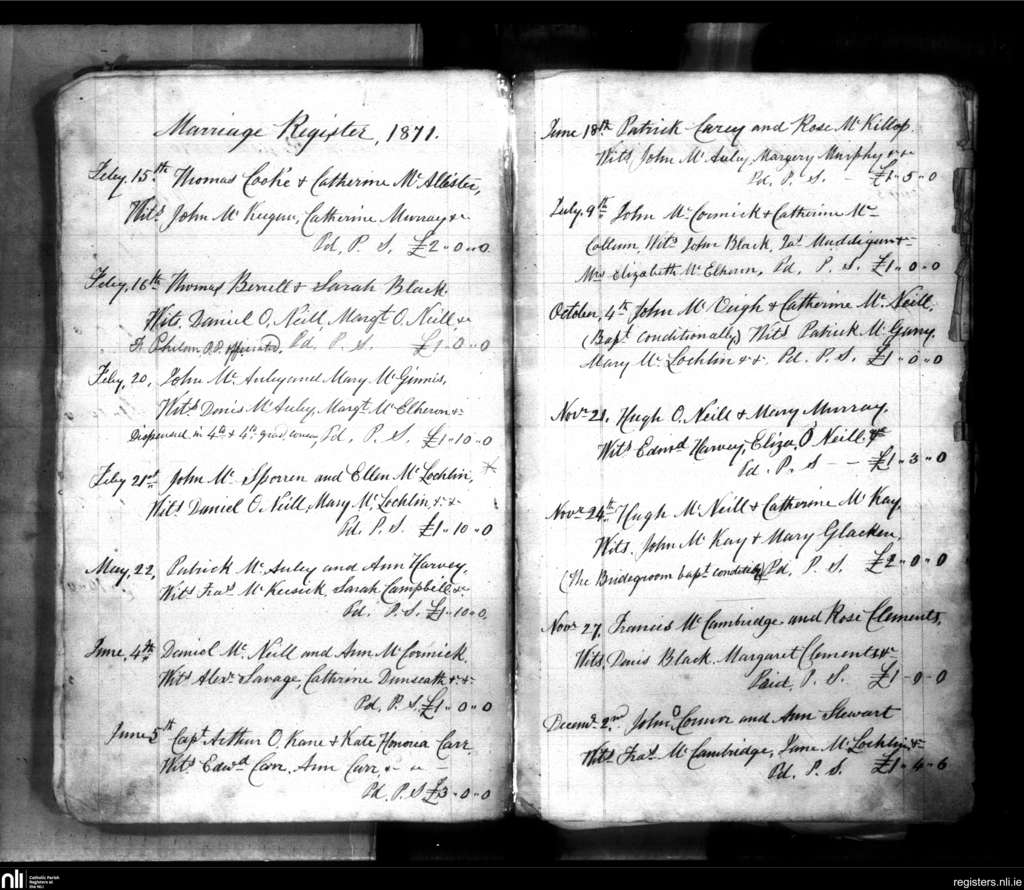 Marriage Register, 1871.
Feby. 15th Thomas Cooke & Catherine Mc Allister,
Wits John Mc Keegan, Catherine Murray &c
Pd. P. S. £2 " 0 " 0
Feby. 16th Thomas Berrell & Sarah Black
Wits. Daniel O, Neill, Margt. O, Neill, &c
Fr. Phelan P.P. officiated. Pd. P. S. £1 0 " 0
Feby. 20, John Mc Auley and Mary Mc Ginnis,
Wits Denis Mc Auley, Margt Mc Elheron &c
Dispensed in 4th & 4th grad. consn. Pd, P. S. £1 " 10 " 0
Feby 21st John Mc Sporen and Ellen Mc Lochlin,
Wits Daniel O Neill, Mary Mc Lochlin, &c &c
Pd. P. S. £1 " 10 " 0
May, 22, Patrick Mc Auley and Ann Harvey,
Wits Fras Mc Kusick, Sarah Campbell, &c
Pd. P. S. £1 " 10 " 0,
June, 4th, Daniel Mc Neill and Ann Mc Cormick.
Wits Alexr. Savage, Cathrine Dunseath &c &c
Pd. P. S. £1 " 0 " 0
June 5th Capt Arthur O, Kane & Kate Honorea Carr.
Wits Edwd Carr, Ann Carr, &c
Pd. P. S £3 " 0 " 0
June 18th Patrick Carey and Rose Mc Killop.
Wits John Mc Auley, Margery Murphy &c
Pd. P. S. - £1 " 5 " 0
July. 9th John Mc Cormick & Catherine Mc
Collum, Wits John Black, Jas Maddigan &c
Mrs Elizabeth Mc Elheron, Pd, P. S. £1 " 0 " 0
October, 4th John Mc Veigh & Catherine Mc Neill,
(Bapt conditionally) Wits Patrick Mc Garry,
Mary Mc Lochlin &c. Pd. P. S. £1 " 0 " 0
Novr 21, Hugh O. Neill & Mary Murray,
Wits Edwd Harvey, Eliza, O' Neill &c
Pd. P. S - - £1 " 3 " 0
Novr 24th Hugh Mc Neill & Catherine Mc Kay,
Wits. John Mc Kay & Mary Glacken,
(The Bridegroom bapt conditly) Pd, P. S. £2 " 0 " 0
Novr 27, Francis Mc Cambridge and Rose Clements,
Wits, Denis Black, Margaret Clements &c
Paid, P. S. £1 - 0 - 0
Decemr 2nd, John O, Connor and Ann Stewart
Wits Fras Mc Cambridge, Jane Mc Lochlin &c
Pd. P. S. £1 " 4 " 6
nli
Catholic Parish
Registers at
the NLI
registers.nli.ie